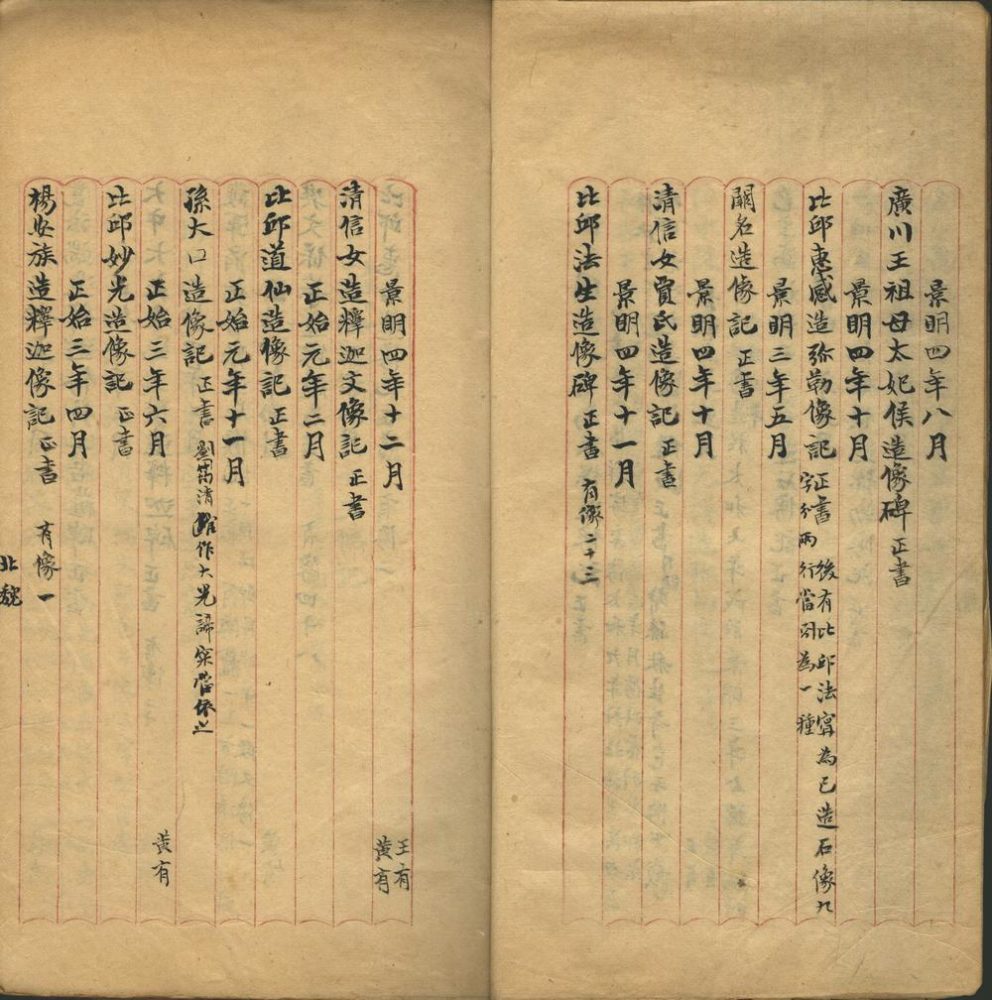 景明四年八月
廣川王祖母太妃侯造像碑 正書
景明四年十月
比邱惠感造弥勒像記 正書 後有比邱法甯為己造石像九
字分兩行當別為一種
景明三年五月
闕名造像記 正書
景明四年十月
清信女賈氏造像記 正書
景明四年十一月
比邱法生造像碑 正書 有像二十三
景明四年十二月 王有
黄有
清信女造釋迦文像記 正書
正始元年二月
比邱道仙造像記 正書
正始元年十一月
孫大口造像記 正書 劉 清 作大光諦審當依之
正始三年六月 黄有
比邱妙光造像記 正書
正始三年四月
楊安族造釋迦像記 正書 有像一
北魏